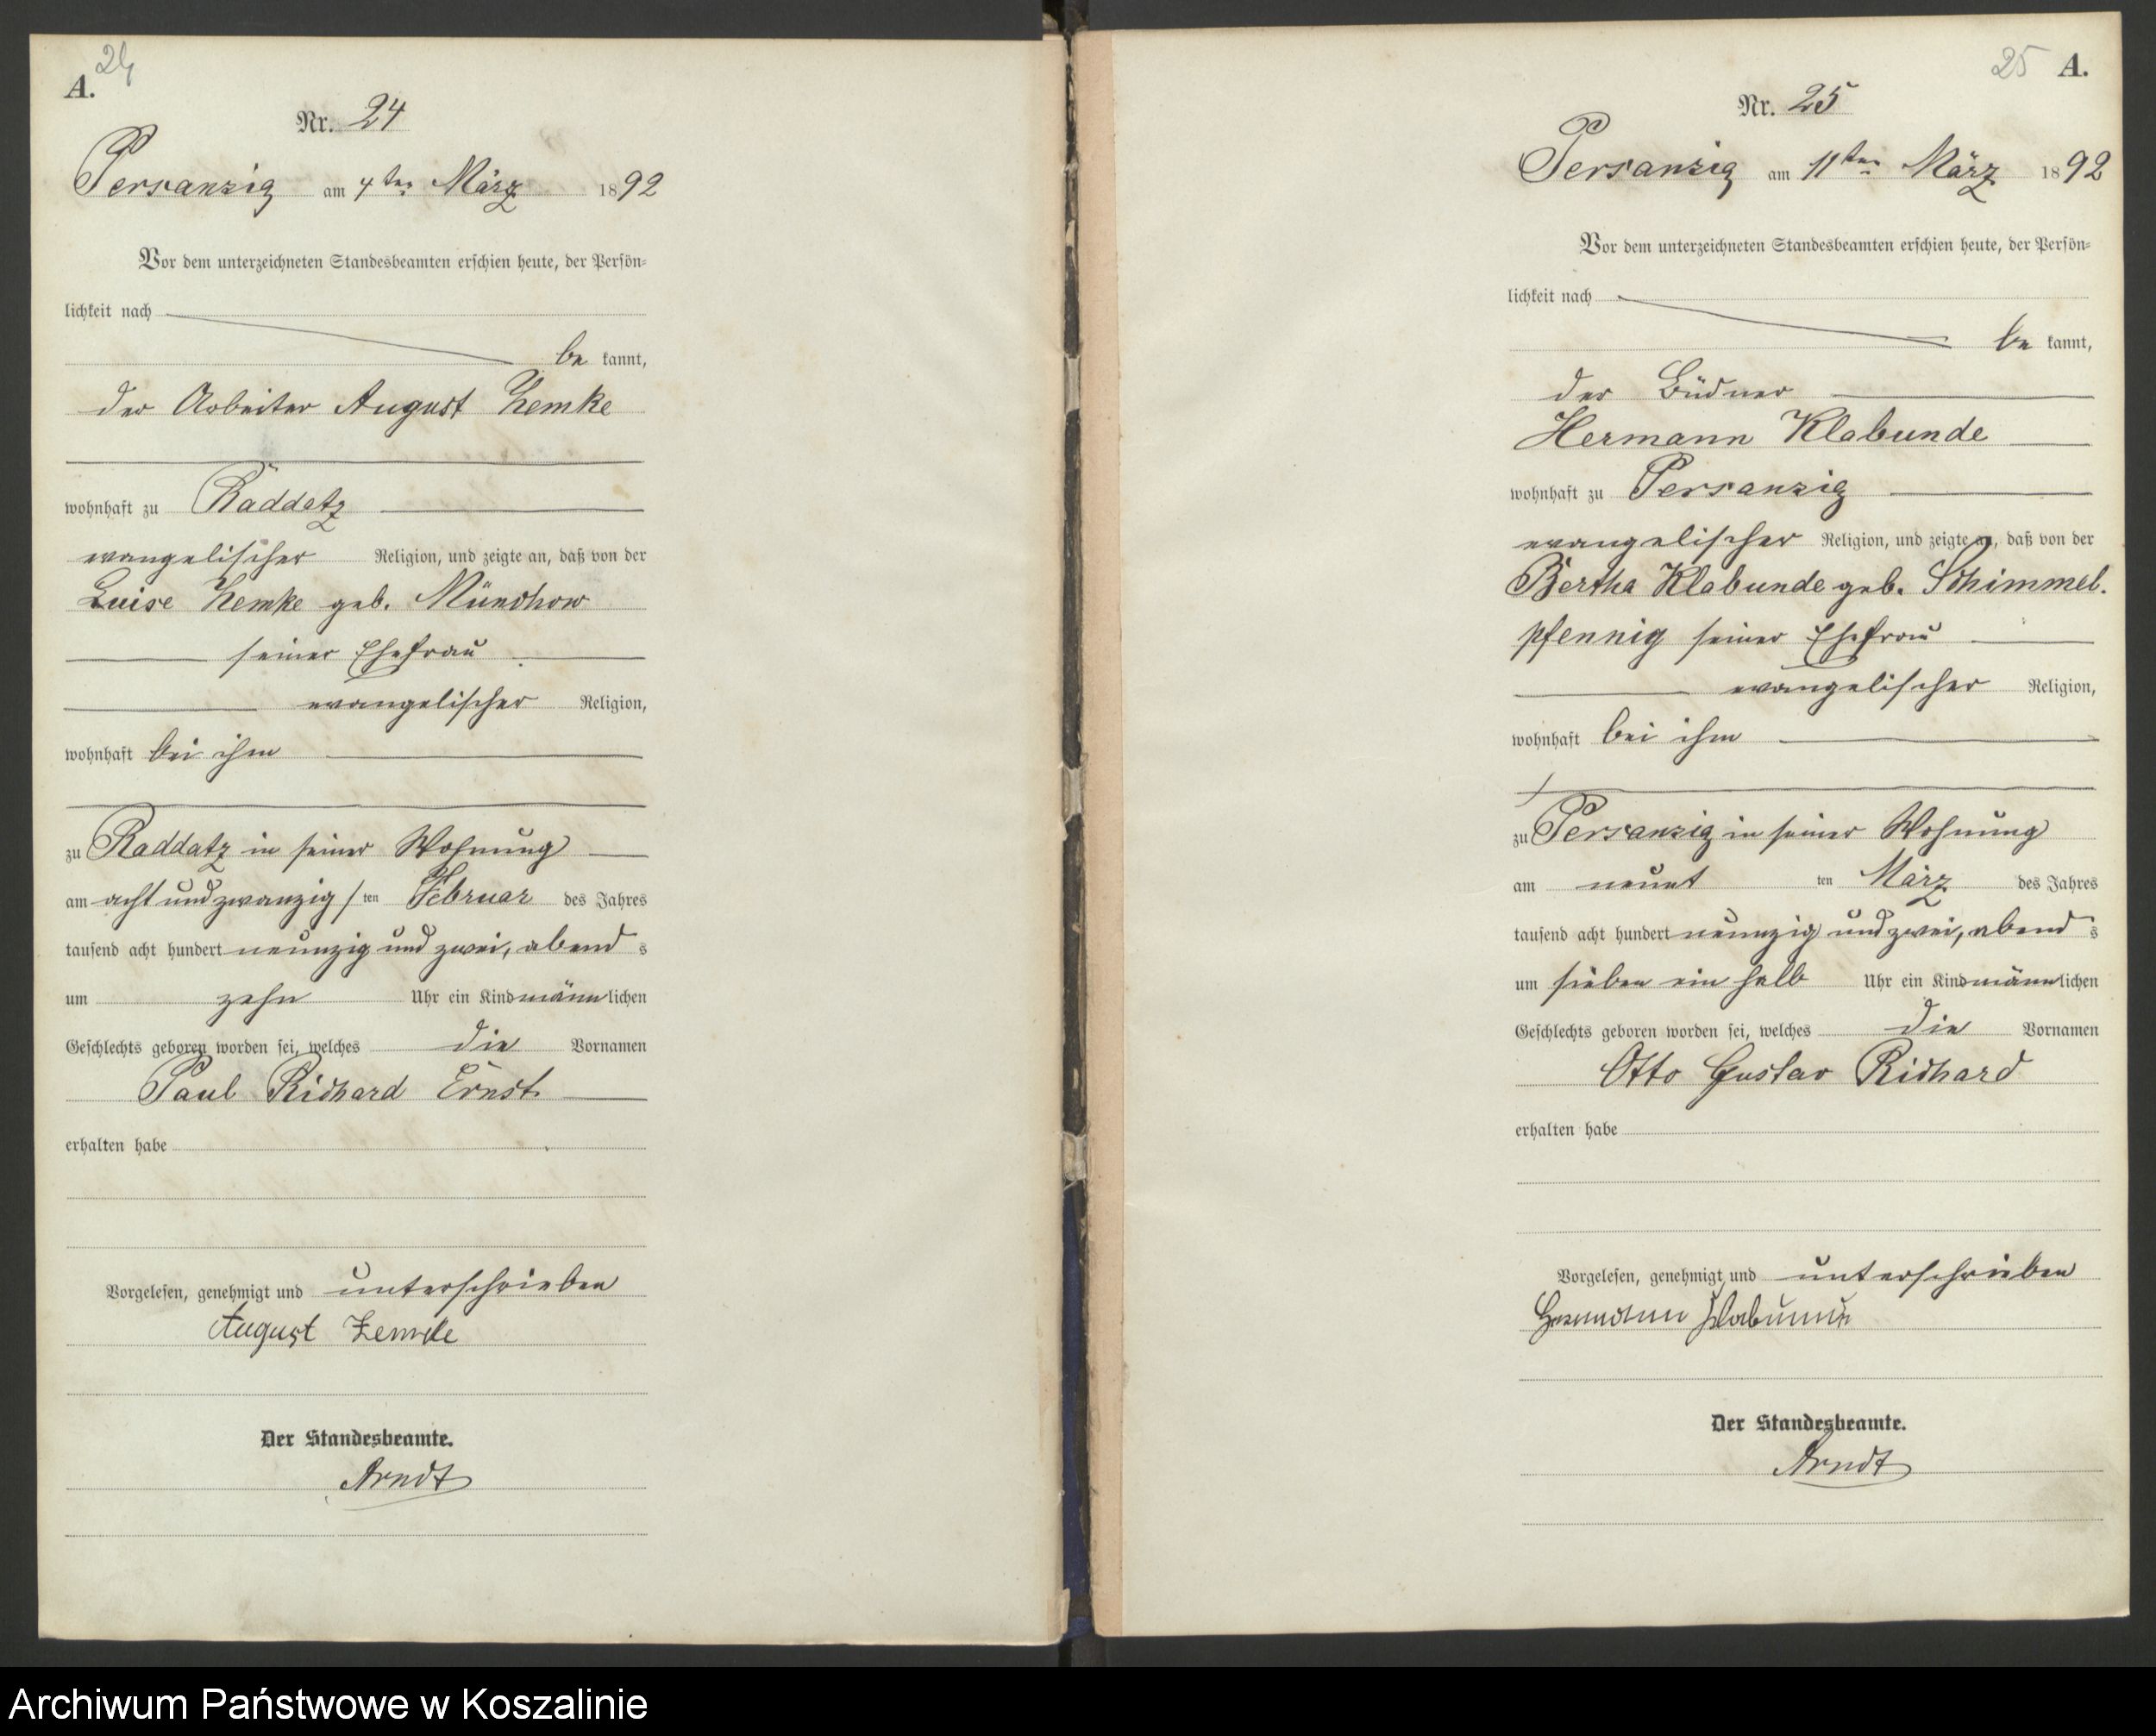 24
A.
Nr. 24
Persanzig am 4ten März 1892
Vor dem unterzeichneten Standesbeamten erschien heute, der Persön-
lichkeit nach
be kannt,
der Arbeiter August Zemke
wohnhaft zu Raddatz
evangelischer Religion, und zeigte an, daß von der
Luise Zemke geb. Münchow
seiner Ehefrau
evangelischer Religion,
wohnhaft bei ihm
zu Raddatz in seiner Wohnung
am acht und zwanzig / ten Februar des Jahres
tausend acht hundert neunzig und zwei, abend s
um zehn Uhr ein Kind männlichen
Geschlechts geboren worden sei, welches die Vornamen
Paul Richard Ernst
erhalten habe
Vorgelesen, genehmigt und unterschrieben
August Zemke
Der Standesbeamte.
Arndt
25 A.
Nr. 25
Persanzig am 11ten März 1892
Vor dem unterzeichneten Standesbeamten erschien heute, der Persön-
lichkeit nach
be kannt,
der Büdner
Hermann Klabunde
wohnhaft zu Persanzig
evangelischer Religion, und zeigte an, daß von der
Bertha Klabunde geb. Schimmel.
pfennig seiner Ehefrau
evangelischer Religion,
wohnhaft bei ihm
zu Persanzig in seiner Wohnung
am neunt ten März des Jahres
tausend acht hundert neunzig und zwei, abend s
um sieben ein halb Uhr ein Kind männlichen
Geschlechts geboren worden sei, welches die Vornamen
Otto Gustav Richard
erhalten habe
Vorgelesen, genehmigt und unterschrieben
Hermann Klabunde
Der Standesbeamte.
Arndt
Archiwum Państwowe w Koszalinie